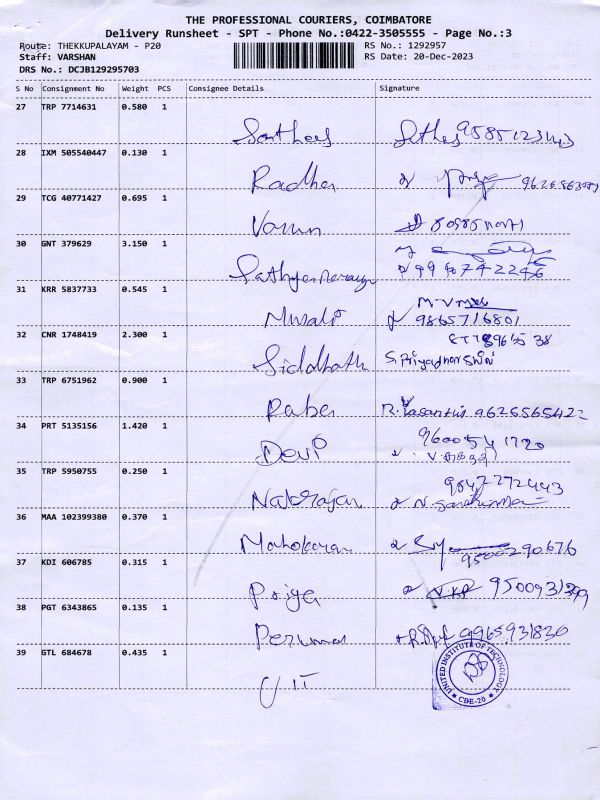 THE PROFESSIONAL COURIERS, COIMBATORE
Delivery Runsheet - SPT - Phone No.:0422-3505555 - Page No.:3
Route: THEKKUPALAYAM - P20
RS No.: 1292957
Staff: VARSHAN
RS Date: 20-Dec-2023
DRS No.: DCJB129295703
S No Consignment No Weight PCS Consignee Details Signature
27 TRP 7714631 0.580 1
28 IXM 505540447 0.130 1
Radha
29 TCG 40771427 0.695 1
Varun
30 GNT 379629 3.150 1
9990742246
31 KRR 5837733 0.545 1
Murali
9865716801
32 CNR 1748419 2.300 1
Siddhath S. Priyadharshini
33 TRP 6751962 0.900 1
R. Vasanthi 9626565422
34 PRT 5135156 1.420 1
9600541720
Devi
35 TRP 5950755 0.250 1
9842272443
Natarajan
36 MAA 102399380 0.370 1
Manokaran
9500290676
37 KDI 606785 0.315 1
Priya V.KP
38 PGT 6343865 0.135 1
Perumal 9965931820
39 GTL 684678 0.435 1
UIT
UNITED INSTITUTE OF TECHNOLOGY
★ CBE-20 ★